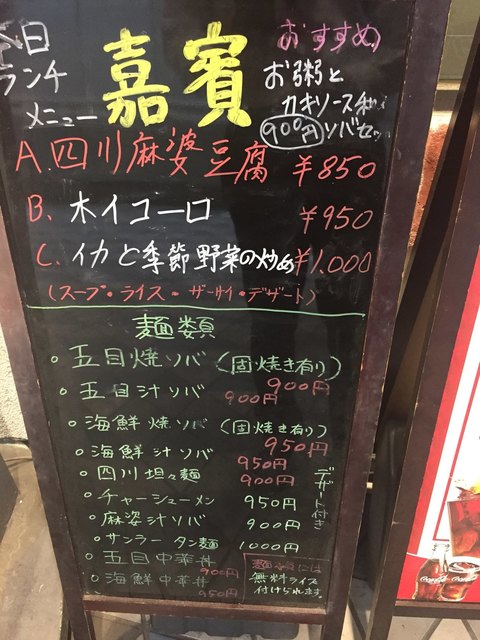 本日
ランチ
メニュー
嘉賓
おすすめ
お粥と
カキソース和え
900円 ソバセット
A. 四川麻婆豆腐 ¥850
B. ホイコーロ ¥950
C. イカと季節野菜の炒め ¥1.000
(スープ・ライス・ザーサイ・デザート)
麺類
五目焼ソバ (固焼き有り)
900円
五目汁ソバ 900円
海鮮焼ソバ (固焼き有り)
950円
海鮮汁ソバ 950円
四川坦々麺 900円
チャーシューメン 950円
麻婆汁ソバ 900円
サンラータン麺 1000円
五目中華丼 900円
海鮮中華丼 950円
デザート付き
麺類には
無料ライス
付けられます
Coca-Cola Coca-Cola